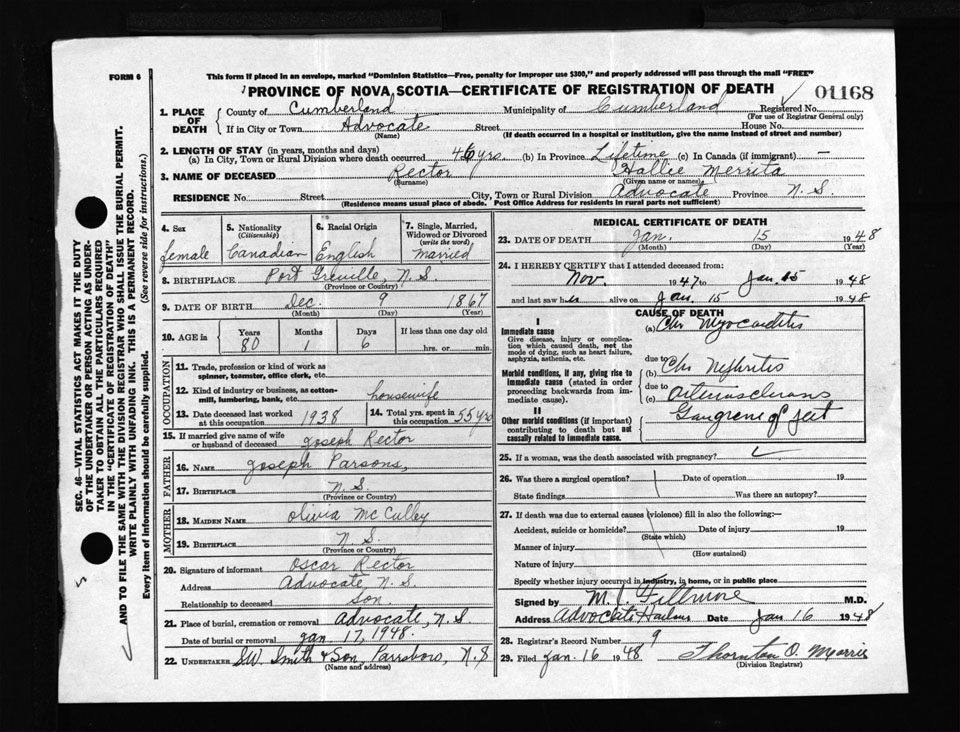 FORM 6
This form if placed in an envelope, marked "Dominion Statistics—Free, penalty for improper use $300," and properly addressed will pass through the mail "FREE"
PROVINCE OF NOVA SCOTIA—CERTIFICATE OF REGISTRATION OF DEATH
01168
1. PLACE OF DEATH
County of Cumberland Municipality of Cumberland Registered No.
(For use of Registrar General only)
If in City or Town Advocate Street House No.
(Name) (If death occurred in a hospital or institution, give the name instead of street and number)
2. LENGTH OF STAY (in years, months and days)
(a) In City, Town or Rural Division where death occurred 46 yrs. (b) In Province Lifetime (c) In Canada (if immigrant) —
3. NAME OF DECEASED Rector Hallie Merrita
(Surname) (Given name or names)
RESIDENCE No. Street City, Town or Rural Division Advocate Province N.S.
(Residence means usual place of abode. Post Office Address for residents in rural parts not sufficient)
4. Sex
female
5. Nationality
(Citizenship)
Canadian
6. Racial Origin
English
7. Single, Married, Widowed or Divorced
(write the word)
Married
8. BIRTHPLACE Port Greville, N.S.
(Province or Country)
9. DATE OF BIRTH Dec. 9 1867
(Month) (Day) (Year)
10. AGE in Years Months Days If less than one day old
80 1 6 hrs. or min.
OCCUPATION
11. Trade, profession or kind of work as spinner, teamster, office clerk, etc.
12. Kind of industry or business, as cotton-mill, lumbering, bank, etc. housewife
13. Date deceased last worked at this occupation 1938
14. Total yrs. spent in this occupation 55 yrs
15. If married give name of wife or husband of deceased Joseph Rector
FATHER
16. NAME Joseph Parsons,
17. BIRTHPLACE N.S.
(Province or Country)
MOTHER
18. MAIDEN NAME Olivia McCulley
19. BIRTHPLACE N.S.
(Province or Country)
20. Signature of informant Oscar Rector
Address Advocate, N.S.
Relationship to deceased Son.
21. Place of burial, cremation or removal Advocate, N.S.
Date of burial or removal Jan 17, 1948.
22. UNDERTAKER S.W. Smith & Son, Parrsboro, N.S
(Name and address)
MEDICAL CERTIFICATE OF DEATH
23. DATE OF DEATH Jan. 15 1948
(Month) (Day)
24. I HEREBY CERTIFY that I attended deceased from:
Nov. 1947 to Jan. 15 1948
and last saw her alive on Jan. 15 1948
CAUSE OF DEATH
I
Immediate cause
Give disease, injury or complication which caused death, not the mode of dying, such as heart failure, asphyxia, asthenia, etc.
(a) Chr Myocarditis
due to
Morbid conditions, if any, giving rise to immediate cause (stated in order proceeding backwards from immediate cause).
(b) Chr Nephritis
due to
(c) arteriosclerosis
II
Other morbid conditions (if important) contributing to death but not causally related to immediate cause.
Gangrene of feet
25. If a woman, was the death associated with pregnancy?
26. Was there a surgical operation? Date of operation 19
State findings Was there an autopsy?
27. If death was due to external causes (violence) fill in also the following:—
Accident, suicide or homicide? Date of injury 19
(State which)
Manner of injury
(How sustained)
Nature of injury
Specify whether injury occurred in industry, in home, or in public place
Signed by M. J. Fillmore M.D.
Address Advocate Harbour Date Jan 16 1948
28. Registrar's Record Number 9
29. Filed Jan. 16 1948 Thornton O. Morris
(Division Registrar)
SEC. 46—VITAL STATISTICS ACT MAKES IT THE DUTY
OF THE UNDERTAKER OR PERSON ACTING AS UNDER-
TAKER TO OBTAIN ALL THE PARTICULARS REQUIRED
IN THE "CERTIFICATE OF REGISTRATION OF DEATH"
AND TO FILE THE SAME WITH THE DIVISION REGISTRAR WHO SHALL ISSUE THE BURIAL PERMIT.
WRITE PLAINLY WITH UNFADING INK. THIS IS A PERMANENT RECORD.
Every item of information should be carefully supplied. (See reverse side for instructions.)